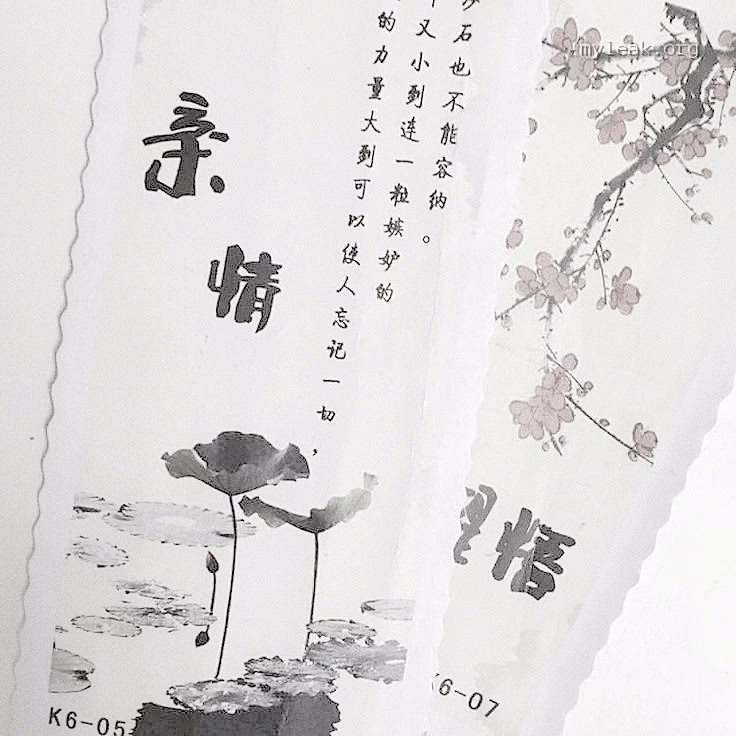 亲情
的力量大到可以使人忘记一切，
又小到连一粒嫉妒的
石也不能容纳。
K6-05
悟
K6-07
myleak.org